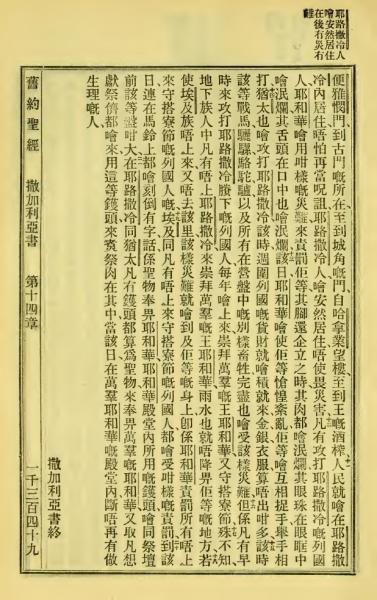 耶路撒冷人
噲安然居住
在後有災有
難
便雅憫門到古門嘅所在至到城角嘅門自哈拿業望樓至到王嘅酒榨人民就噲在耶路撒
冷內居住唔怕再當呪詛耶路撒冷人噲安然居住唔使畏災害凡有攻打耶路撒冷嘅列國
人耶和華噲用咁樣嘅災難來責罰佢等其脚還企立之時其肉都噲泯爛其眼珠在眼眶中
噲泯爛其舌頭在口中也噲泯爛該日耶和華噲使佢等愴惶紊亂佢等噲互相捉手舉手相
打猶太也噲攻打耶路撒冷該時週圍列國嘅貨財就噲積就來金銀衣服算唔出咁多該時
該等戰馬騾駱駝驢以及所有在營盤中嘅別樣畜牲完盡也噲受該樣災難但係凡有早
時來攻打耶路撒冷賸下嘅列國人每年噲上來崇拜萬羣嘅王耶和華又守搭寮節殊不知
地下族人中凡有唔上耶路撒冷來崇拜萬羣嘅王耶和華雨水也就唔降畀佢等嘅地方若
使埃及族唔上來又唔去該里該樣災難就噲到及佢等嘅身上卽係耶和華責罰所有唔上
來守搭寮節嘅列國人嘅埃及同凡有唔上來守搭寮節嘅列國人都噲受咁樣嘅責罰到該
日連在馬鈴上都噲刻倒有字話係聖物奉畀耶和華耶和華殿堂內所用嘅鑊頭噲同祭壇
前該等盤咁大在耶路撒冷同猶太凡有鑊頭都算爲聖物來奉畀萬羣嘅耶和華又取凡想
獻祭儕都噲來用這等鑊頭來祭肉在其中當該日在萬羣耶和華嘅殿堂內斷唔再有做
生理嘅人
撒加利亞書終
舊約聖經 撒加利亞書 第十四章 一千三百四十九